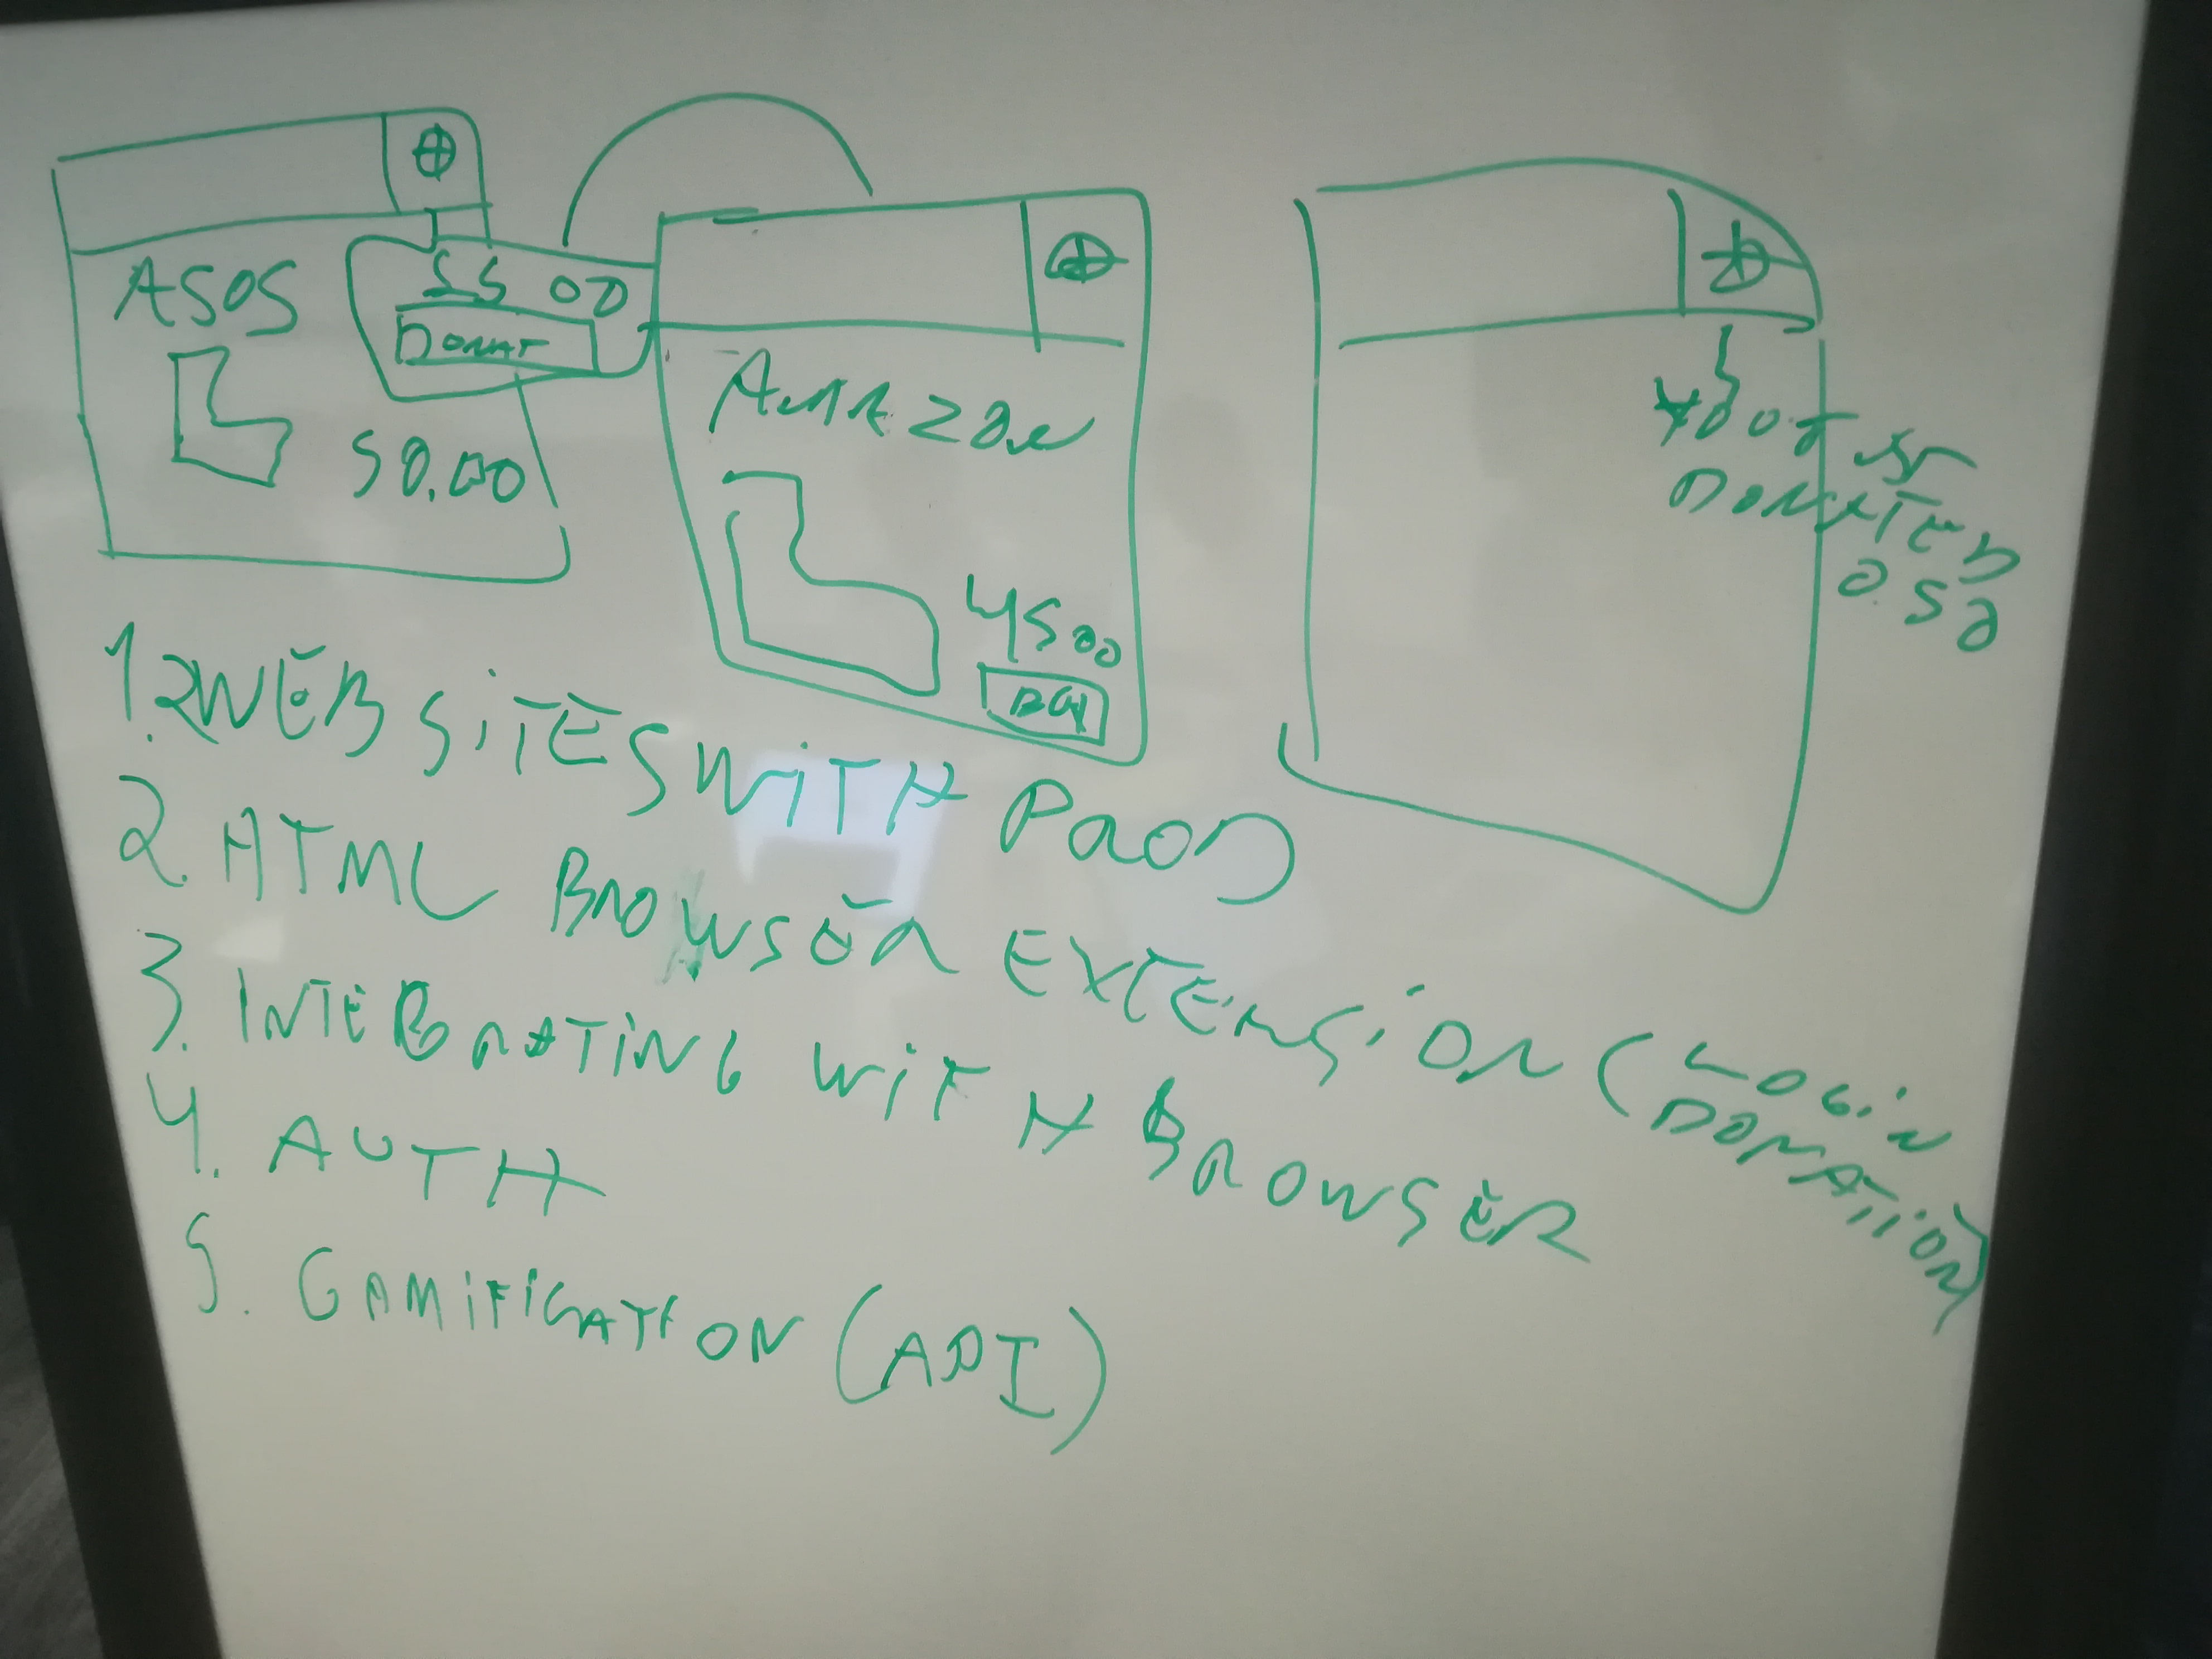 ASOS
SS OD
DONAT
50.00
AMAZON
4500
DONATED
0.50
1. 2 WEB SITES WITH PROD
2. HTML BROWSER EXTENSION (LOGIN
DONATION)
3. INTEGRATING WITH BROWSER
4. AUTH
5. GAMIFICATION (API)